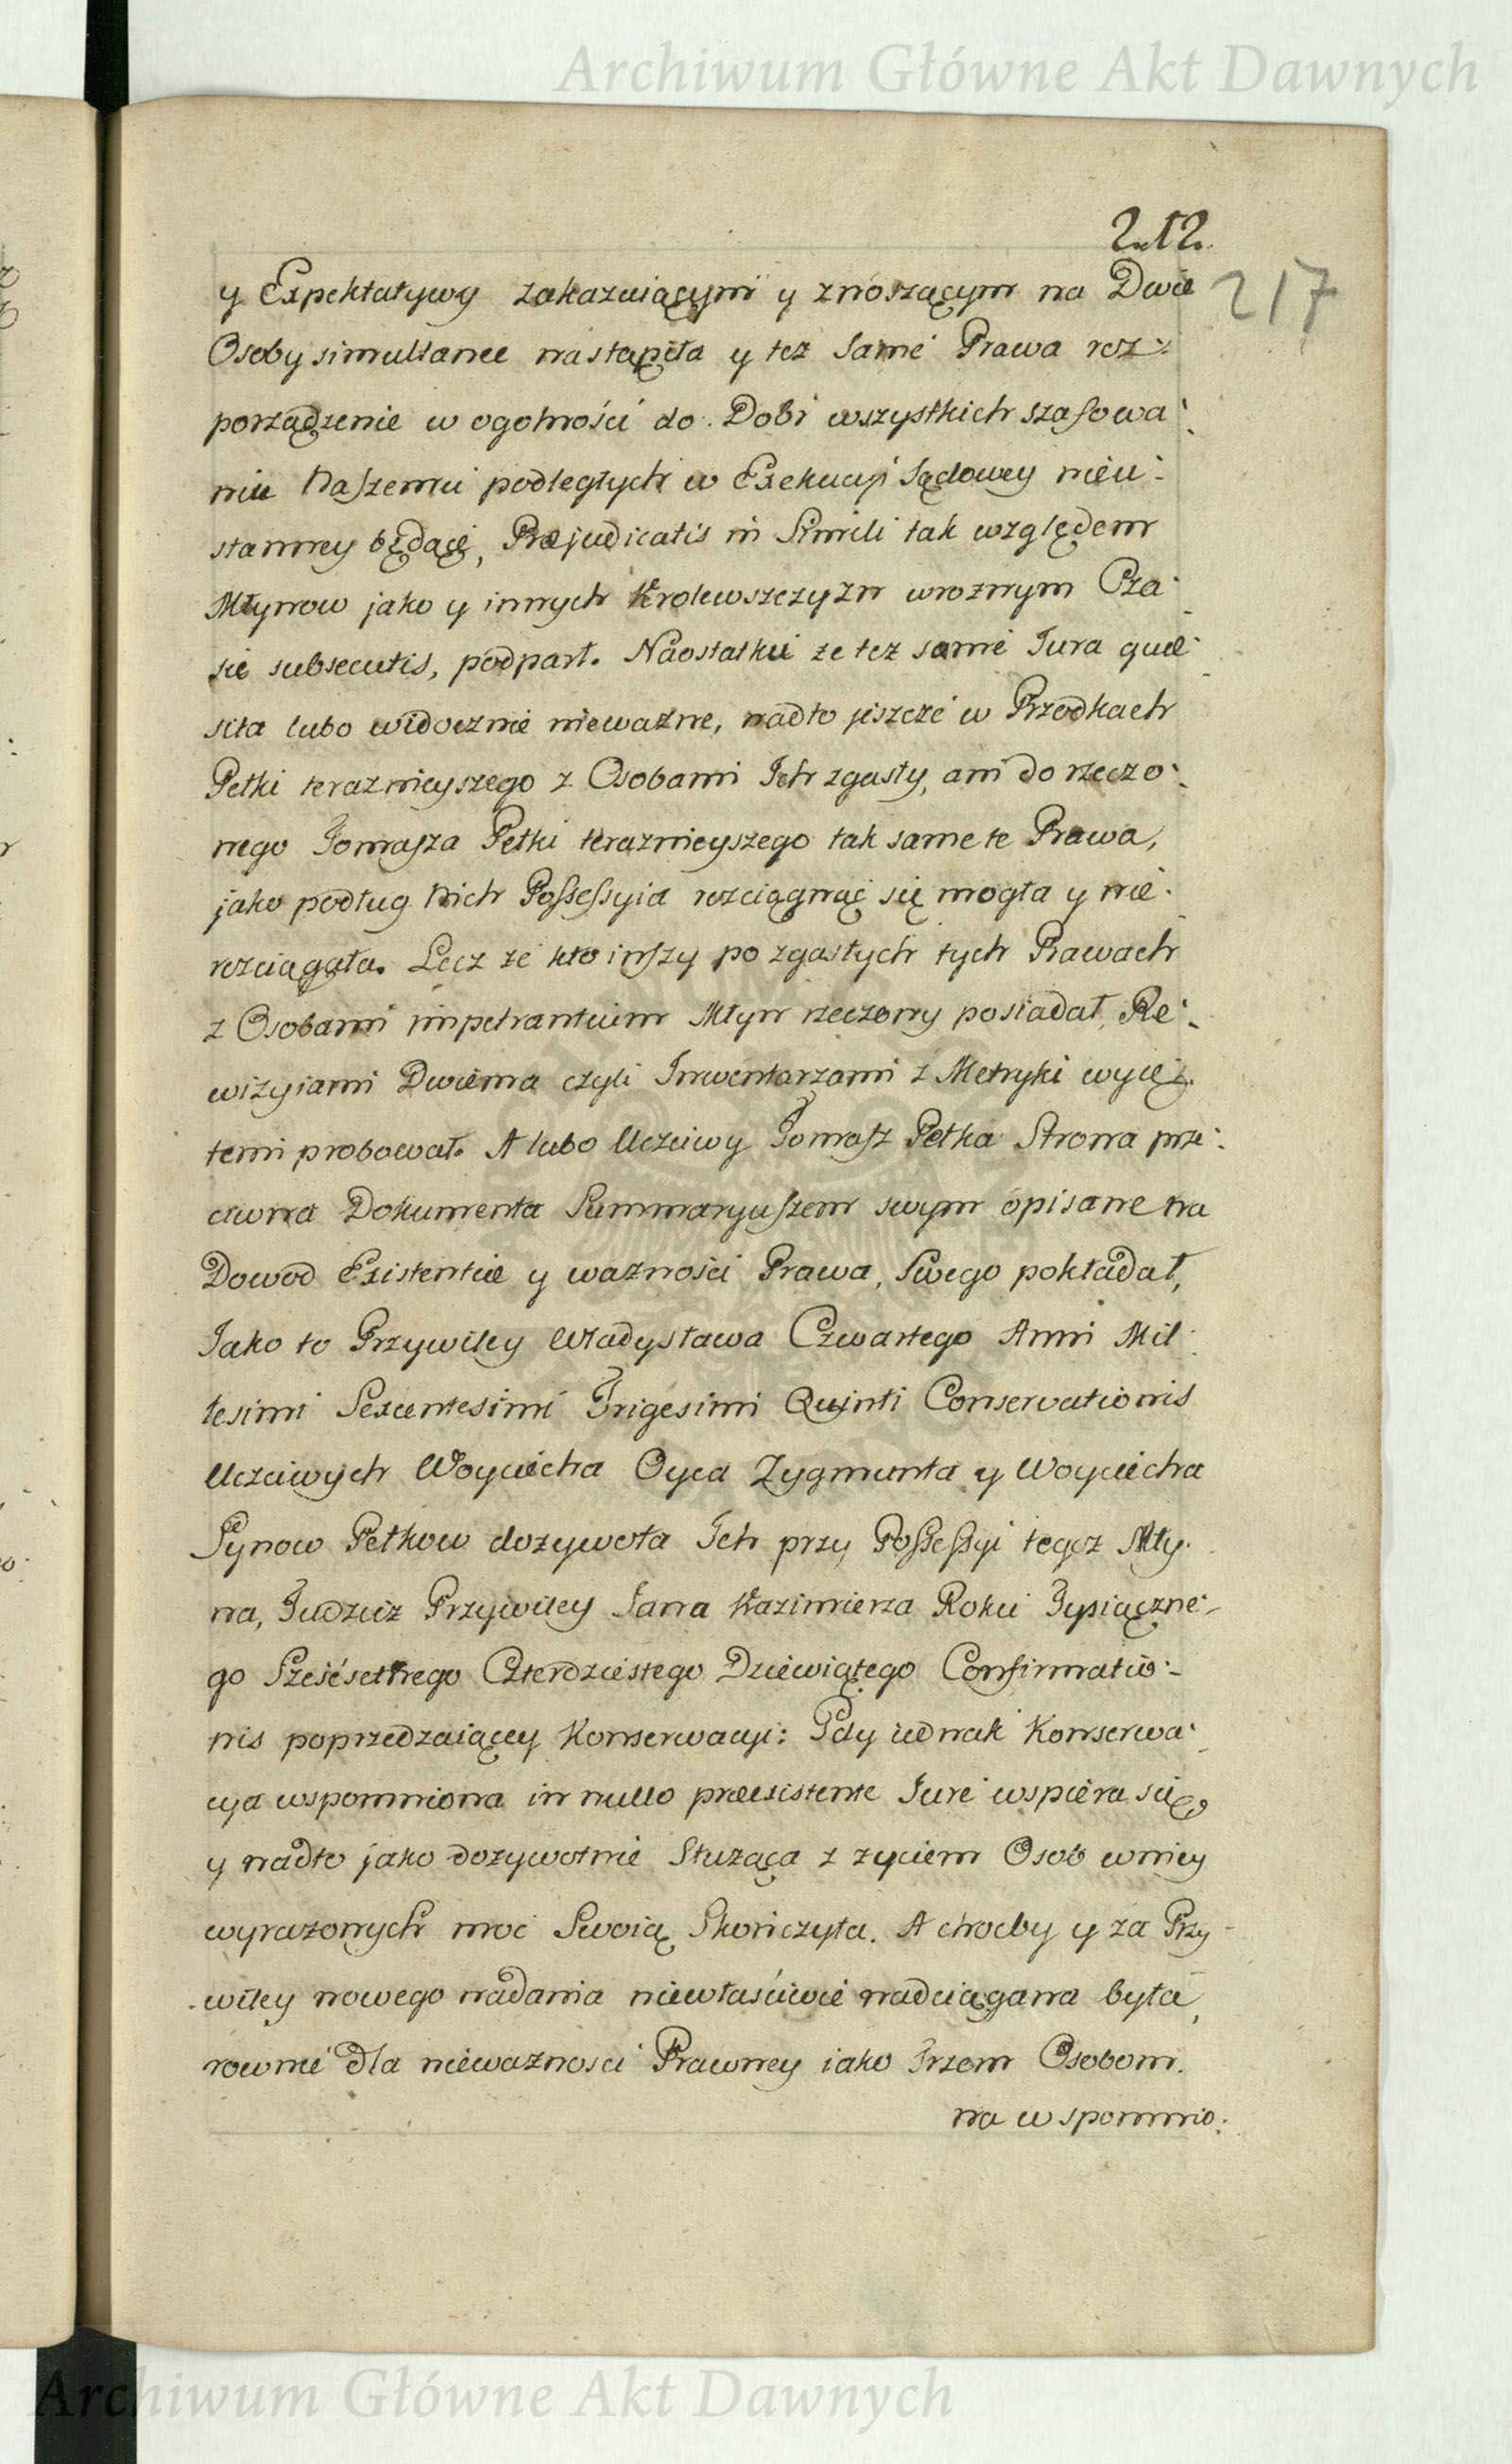 Archiwum Główne Akt Dawnych
212.
217
y Expektatywy zakazuiącymi y znoszącym na Dwie
Osoby simultanee nastąpiła y też same Prawa roz:
porządzenie w ogolności do Dobr wszystkich szafowa:
niu Naszemu podległych w Exekucyi Sądowey nieu:
stanney będące, Præjudicatis in Simili tak względem
Młynow jako y innych Krolewszczyzn w roznym Cza:
sie subsecutis, podparł. Naostatku że też same Jura quæ:
sita lubo widocznie nieważne, nadto jeszcze w Przodkach
Petki teraznieyszego z Osobami Ich zgasły, ani do rzeczo:
nego Tomasza Petki teraznieyszego tak same te Prawa,
jako podług Nich Possessyia rozciągnąć się mogła y nie:
rozciągała. Lecz że kto inszy po zgasłych tych Prawach
z Osobami impetrantium Młyn rzeczony posiadał, Re:
wizyiami Dwiema czyli Inwentarzami z Metryki wyię:
temi probował. A lubo Uczciwy Tomasz Petka Strona prze:
ciwna Dokumenta Summaryuszem swym opisane na
Dowod Existentiæ y ważności Prawa, Swego pokładał,
Jako to Przywiley Władysława Czwartego Anni Mil:
lesimi Sexcentesimi Trigesimi Quinti Conservationis
Uczciwych Woyciecha Oyca Zygmunta y Woyciecha
Synow Petkow dożywota Ich przy Possessyi tegoż Mły:
na, Tudzież Przywiley Jana Kazimierza Roku Tysiączne:
go Sześćsetnego Czterdziestego Dziewiątego Confirmatio:
nis poprzedzaiącey Konserwacyi: Gdy iednak Konserwa:
cya wspomniona in nullo præexistente Jure wspiera się,
y nadto jako dożywotnie Służąca z życiem Osob w niey
wyrażonych moc Swoią Skończyła. A choćby y za Przy-
wiley nowego nadania niewłaściwie nadciągana była,
rownie dla nieważnosci Prawney iako Trzem Osobom.
na wspomnio:
Archiwum Główne Akt Dawnych